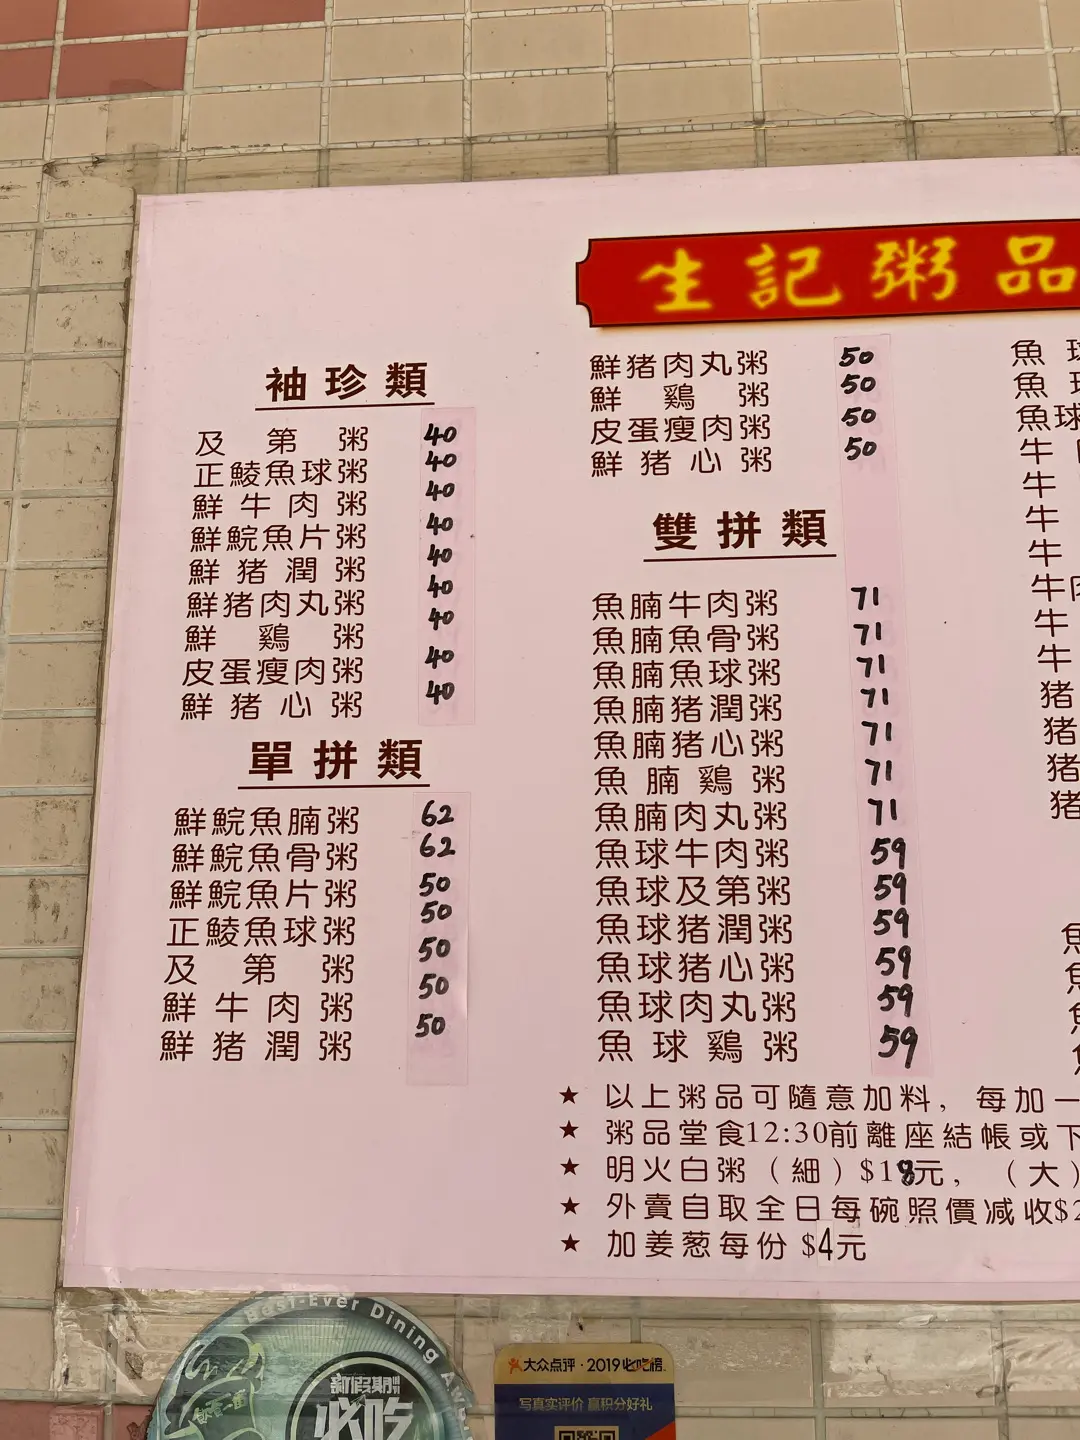 生記粥品
袖珍類
及第粥 40
正鯪魚球粥 40
鮮牛肉粥 40
鮮鯇魚片粥 40
鮮猪潤粥 40
鮮猪肉丸粥 40
鮮鷄粥 40
皮蛋瘦肉粥 40
鮮猪心粥 40
單拼類
鮮鯇魚腩粥 62
鮮鯇魚骨粥 62
鮮鯇魚片粥 50
正鯪魚球粥 50
及第粥 50
鮮牛肉粥 50
鮮猪潤粥 50
鮮猪肉丸粥 50
鮮鷄粥 50
皮蛋瘦肉粥 50
鮮猪心粥 50
雙拼類
魚腩牛肉粥 71
魚腩魚骨粥 71
魚腩魚球粥 71
魚腩猪潤粥 71
魚腩猪心粥 71
魚腩鷄粥 71
魚腩肉丸粥 71
魚球牛肉粥 59
魚球及第粥 59
魚球猪潤粥 59
魚球猪心粥 59
魚球肉丸粥 59
魚球鷄粥 59
魚球
魚球
魚球
牛
牛
牛
牛
牛肉
牛
牛
猪
猪
猪
猪
★ 以上粥品可隨意加料，每加一
★ 粥品堂食12:30前離座結帳或下
★ 明火白粥（細）$18元，（大）
★ 外賣自取全日每碗照價减收$2
★ 加姜葱每份 $4元
Best-Ever Dining
新假期
必吃
大众点评·2019必吃榜
写真实评价 赢积分好礼